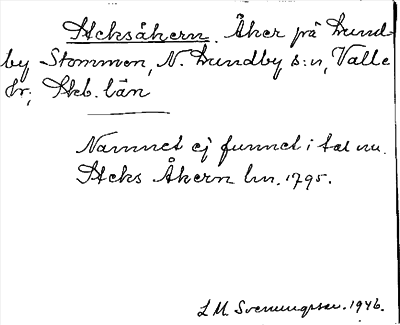 Stcksåkern. Åker på Lund-
by Stommen, N. Lundby s:n, Valle
hr; Skb. län
Namnet ej funnet i tal nu.
Stcks Åkern lm. 1795.
L M. Svenungsson. 1946.